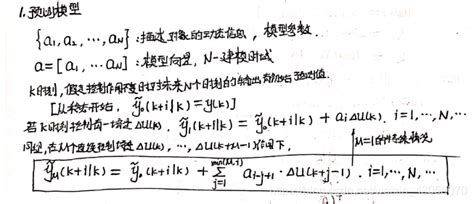 1. 预测模型
{a₁, a₂, ⋯, a_N}：描述对象的动态信息，模型参数.
a=[a₁, ⋯ a_N]：模型向量，N-建模时域
k时刻，假定控制作用不变时对未来N个时刻的输出初始预测值.
[从稳态开始，ỹ₀(k+i|k)=y(k)]
若k时刻控制有一增量Δu(k). ỹ₁(k+i|k) = ỹ₀(k+i|k) + aᵢΔu(k). i=1, ⋯, N, ⋯
同理，在M个连续控制增量Δu(k), ⋯, Δu(k+M-1)作用下，
M=1的
ỹ_M(k+i|k) = ỹ₀(k+i|k) + Σ_{j=1}^{min(M,i)} a_{i-j+1}·Δu(k+j-1). i=1, ⋯, N, ⋯